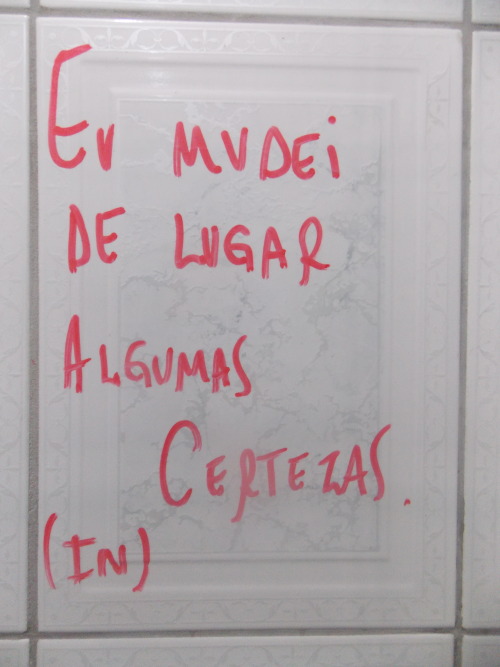 Eu MUDEi
DE LUGAR
ALGUMAS
CERTEZAS.
(IN)